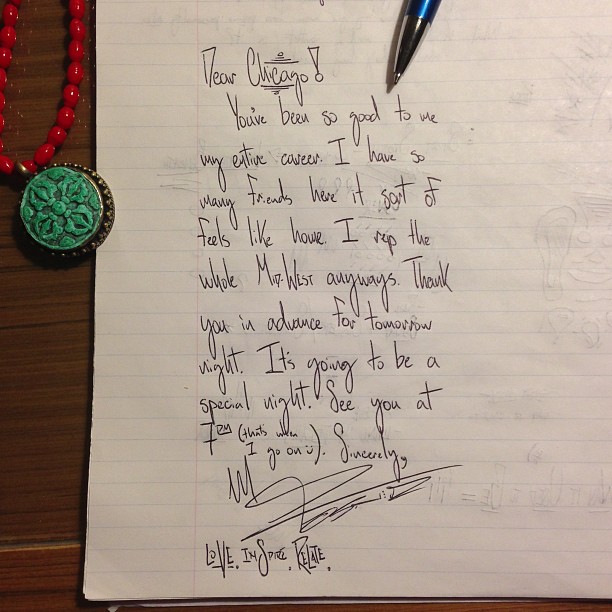 Dear Chicago!
You've been so good to me
my entire career. I have so
many friends here it sort of
feels like home. I rep the
whole Mid-West anyways. Thank
you in advance for tomorrow
night. It's going to be a
special night. See you at
7PM (that's when
I go on :)). Sincerely,
LOVE. INSPIRE. RELATE.